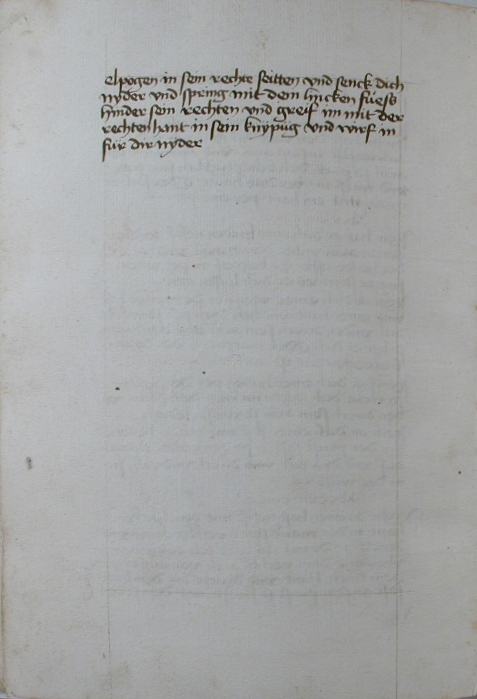 elpogen in sein rechte seitten vnd senck dich
nyder vnd spring mit dem lincken fuess
hinder sein rechten vnd greif im mit der
rechten hant in sein knypug vnd wirf in
für dir nyder